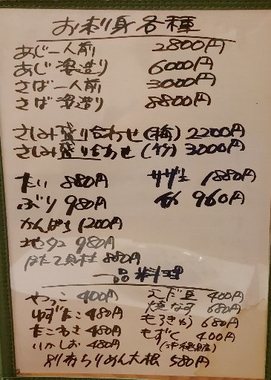 お刺身各種
あじ一人前 2800円
あじ姿造り 6000円
さば一人前 3000円
さば姿造り 8800円
さしみ盛り合わせ(梅) 2200円
さしみ盛り合わせ(竹) 3000円
たい 880円 サザエ 1880円
ぶり 980円 960円
かんぱち 1200円
地タコ 980円
ほたて貝柱 880円
一品料理
やっこ 400円 えだ豆 400円
ゆずたこ 480円 焼なす 680円
たこわさ 480円 もろきゅう 680円
いかしお 480円 もずく 400円
ちりめん大根 580円